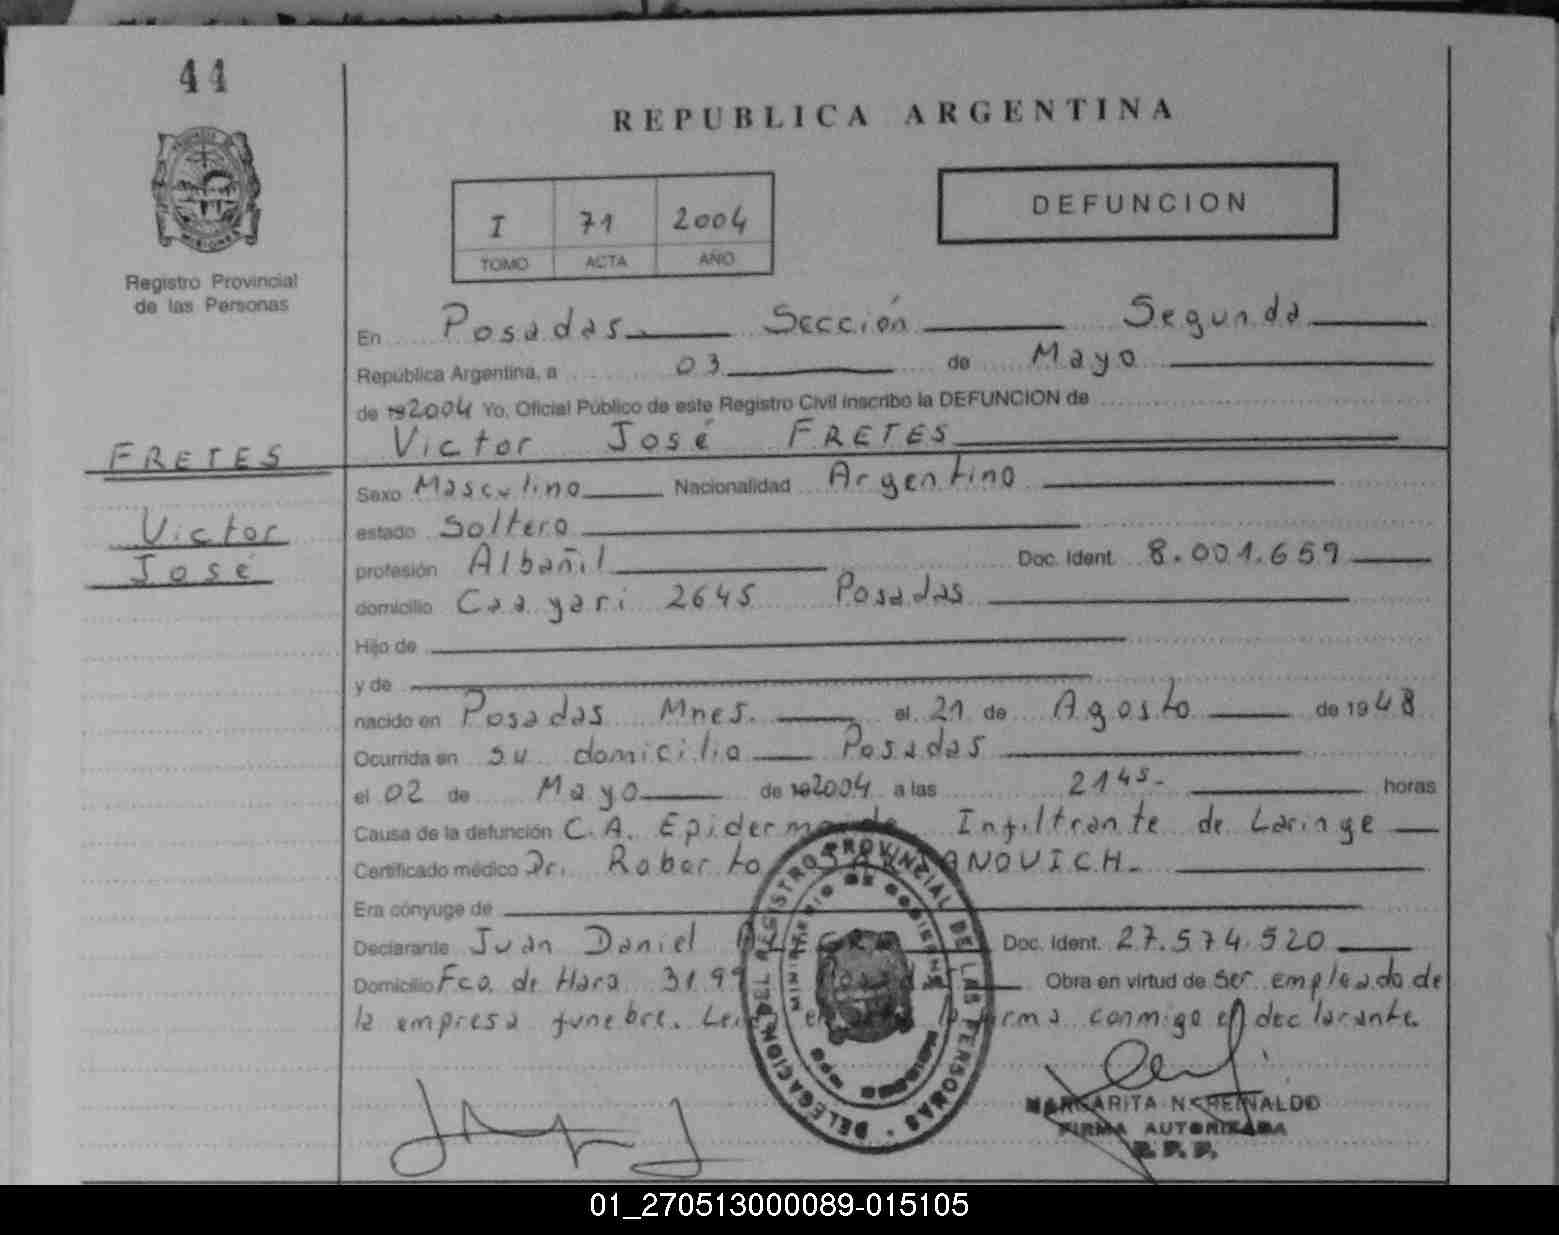 44
REPUBLICA ARGENTINA
I 71 2004
TOMO ACTA AÑO
DEFUNCION
MISIONES
Registro Provincial
de las Personas
En Posadas Sección Segunda
República Argentina, a 03 de Mayo
de 192004 Yo, Oficial Público de este Registro Civil inscribo la DEFUNCION de
Victor José FRETES
FRETES
Victor
José
Sexo Masculino Nacionalidad Argentino
estado Soltero
profesión Albañil Doc. Ident. 8.001.659
domicilio Caa yari 2645 Posadas
Hijo de
y de
nacido en Posadas Mnes. el 21 de Agosto de 1948
Ocurrida en su domicilio Posadas
el 02 de Mayo de 192004 a las 21 45- horas
Causa de la defunción C.A. Epidermoide Infiltrante de Laringe
Certificado médico Dr. Roberto
Era cónyuge de
Declarante Juan Daniel Doc. Ident. 27.574.520
Domicilio Fco. de Haro 3199 Obra en virtud de Ser empleado de
la empresa funebre. firma conmigo el declarante.
DELEGACION DEL REGISTRO PROVINCIAL DE LAS PERSONAS
MINISTERIO DE GOBIERNO
MARGARITA N. REINALDO
FIRMA AUTORIZADA
R.P.P.
01_270513000089-015105